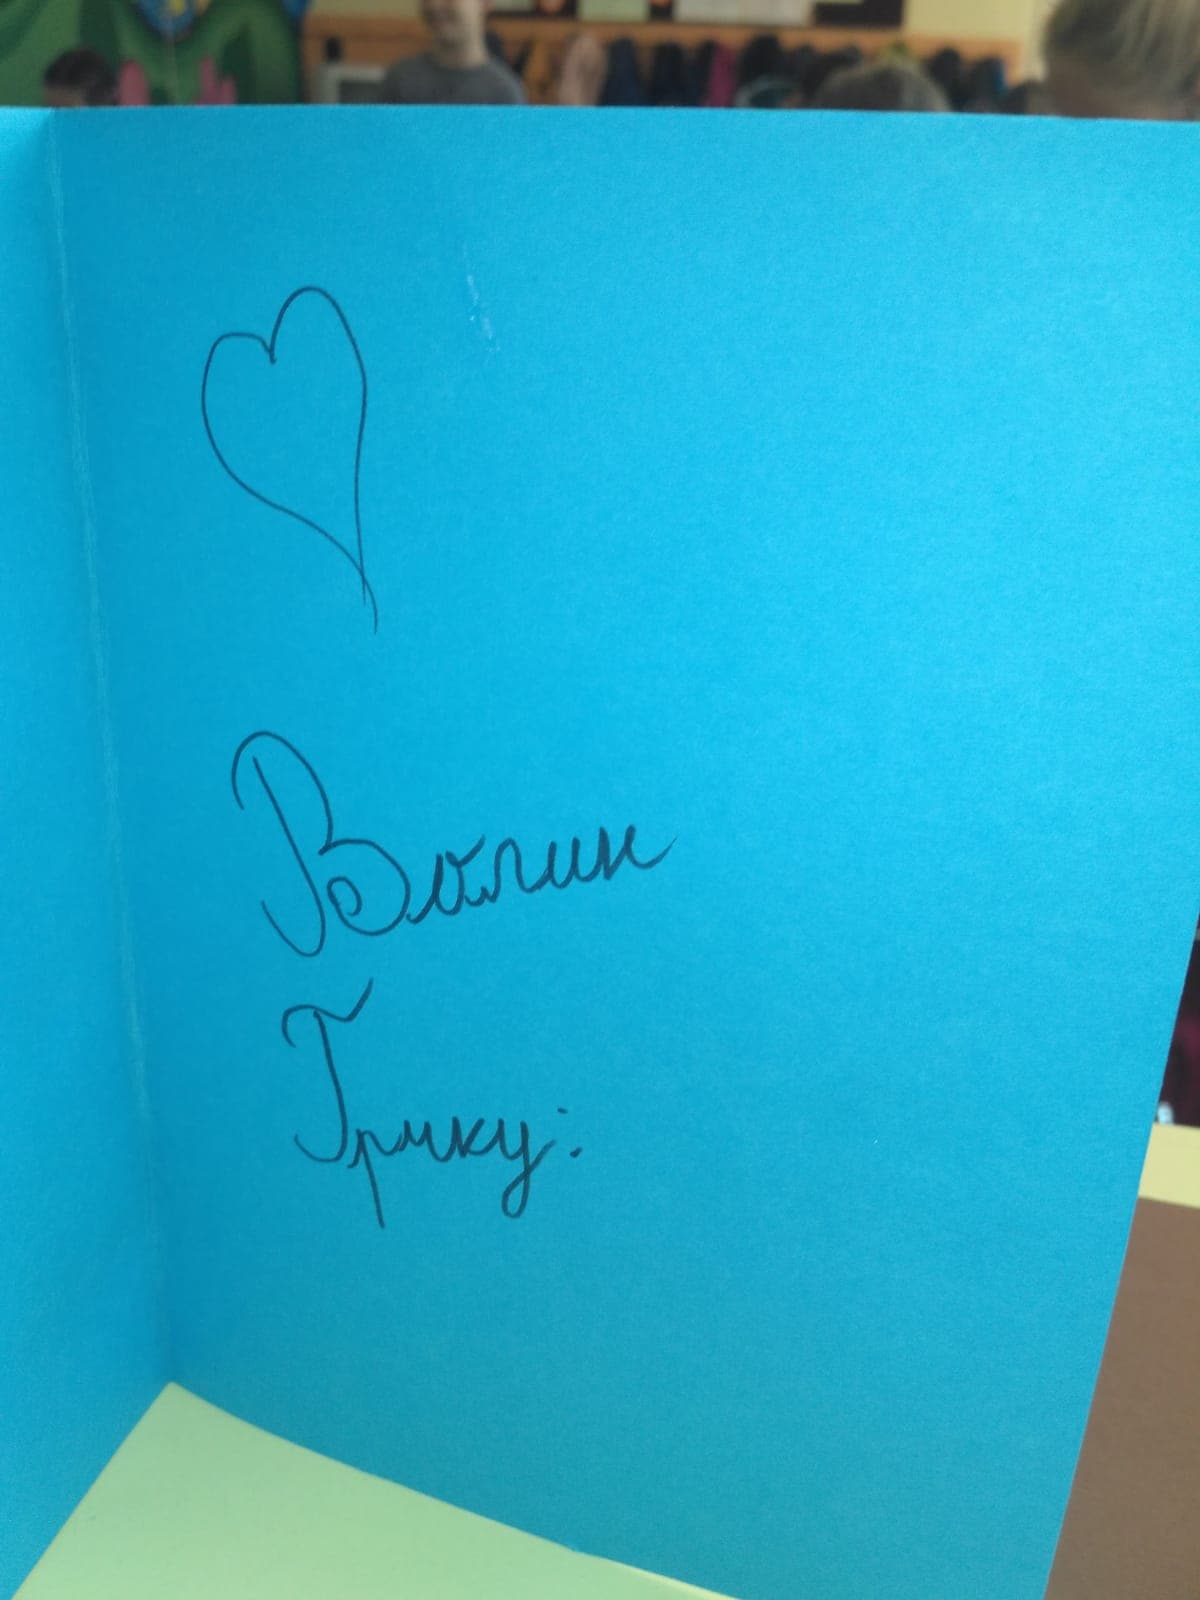 Волим
Грчку: